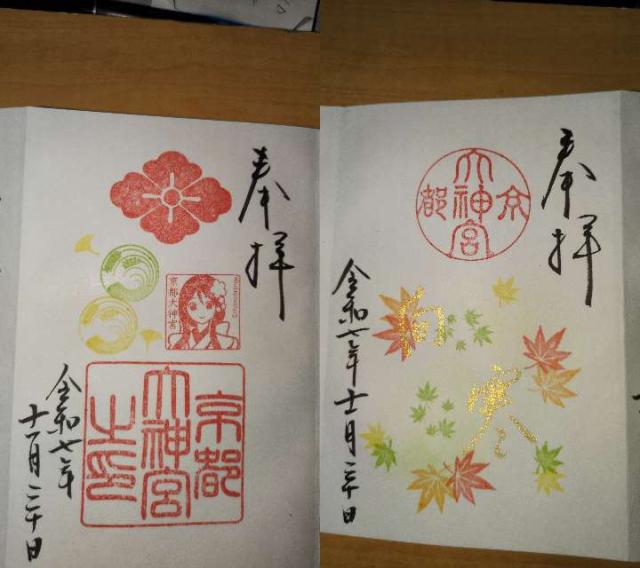 奉拝
京都大神宮
京都
大神宮
之印
令和七年
十一月二十日
奉拝
京都大神宮
向寒
令和七年十一月二十日